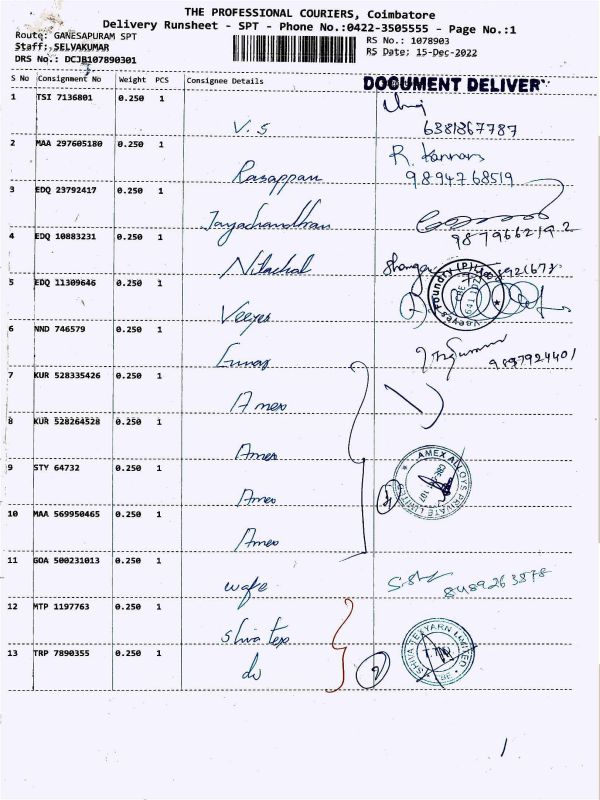 THE PROFESSIONAL COURIERS, Coimbatore
Delivery Runsheet - SPT - Phone No.:0422-3505555 - Page No.:1
Route: GANESAPURAM SPT
RS No.: 1078903
Staff: SELVAKUMAR
RS Date: 15-Dec-2022
DRS No.: DCJB107890301
S No Consignment No Weight PCS Consignee Details DOCUMENT DELIVER
1 TSI 7136801 0.250 1
V. S 6381367787
2 MAA 297605180 0.250 1
R. Kannan
Rasappan 9894768519
3 EDQ 23792417 0.250 1
Jayachandhran 9879662192
4 EDQ 10883231 0.250 1
Nilachal
5 EDQ 11309646 0.250 1
Veeyes
6 NND 746579 0.250 1
7 KUR 528335426 0.250 1
Amex
8 KUR 528264528 0.250 1
Amex
9 STY 64732 0.250 1
AMEX ALLOYS PRIVATE LIMITED
Amex 4
10 MAA 569950465 0.250 1
Amex
11 GOA 500231013 0.250 1
8489263878
12 MTP 1197763 0.250 1
Shiva tex
SHIVA TEXYARN LIMITED
13 TRP 7890355 0.250 1
do 2